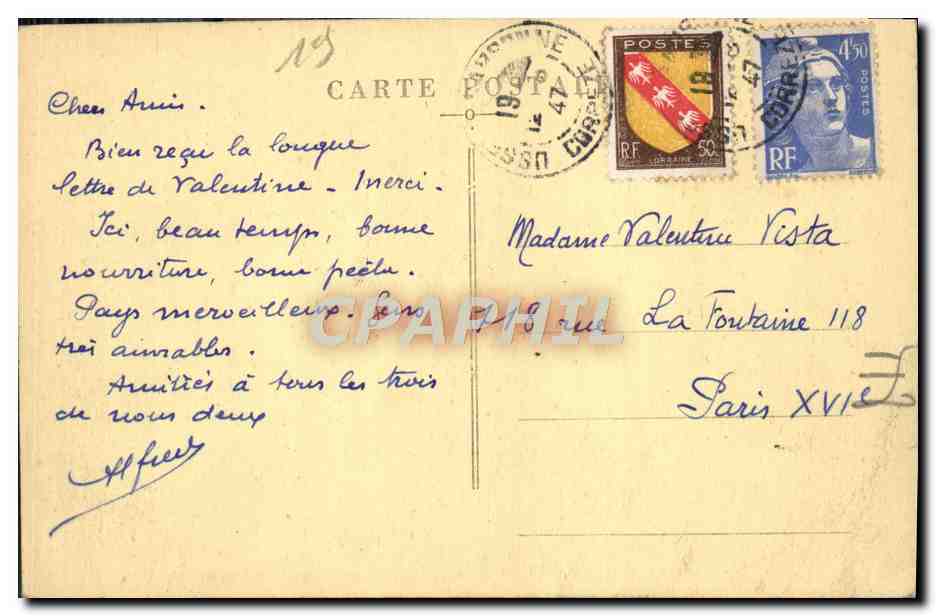 19
CARTE POSTALE
Chers Amis.
Bien reçu la longue
lettre de Valentine - merci -
Ici, beau temps, bonne
nourriture, bonne pêche.
Pays merveilleux. Gens
très aimables.
Amitiés à tous les trois
de nous deux
Alfred
USSEL CORREZE
19
12
47
POSTES
RF
LORRAINE
50c
18
12
47
CORREZE
4f50
POSTES
RF
Madame Valentine Vista
118 rue La Fontaine 118
Paris XVIe
CPAPHIL